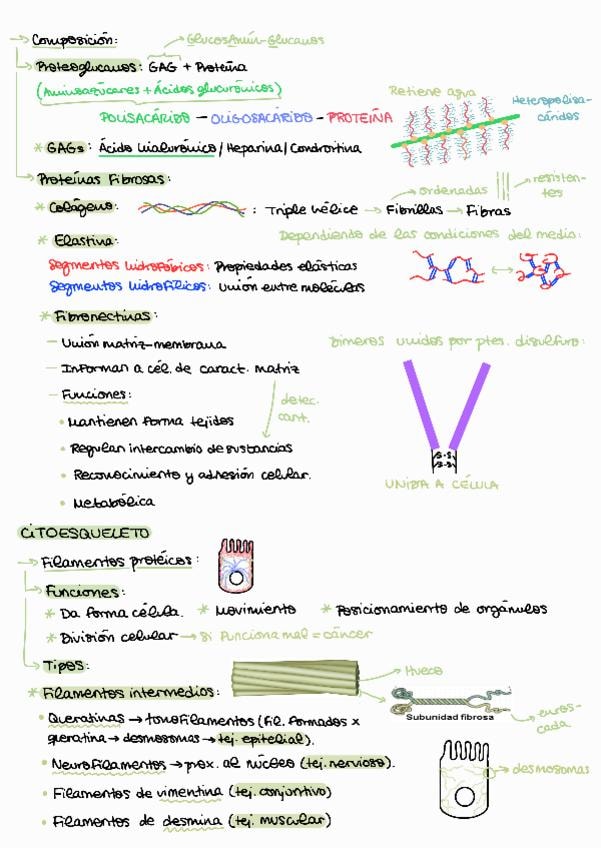 → Composición: GlucosAmin-Glucanos
→ Proteoglucanos: GAG + Proteína
(Aminoazúcares + Ácidos glucurónicos) Retiene agua
POLISACÁRIDOS — OLIGOSACÁRIDOS — PROTEÍNA Heteropolisa-
cáridos
* GAGs: Ácido hialurónico / Heparina / Condroitina
→ Proteínas Fibrosas: resisten-
tes
ordenadas
* Colágeno: : Triple hélice → Fibrillas → Fibras
* Elastina: Dependiendo de las condiciones del medio:
Segmentos hidrofóbicos: Propiedades elásticas
Segmentos hidrofílicos: Unión entre moléculas
* Fibronectinas:
— Unión matriz-membrana Dímeros unidos por ptes. disulfuro:
— Informan a cél. de caract. matriz
— Funciones: detec.
cant.
• Mantienen forma tejidos
• Regulan intercambio de sustancias S-S
S-S
• Reconocimiento y adhesión celular.
UNIDA A CÉLULA
• Metabólica
CITOESQUELETO
→ Filamentos protéicos:
→ Funciones:
* Da forma célula. * Movimiento * Posicionamiento de orgánulos
* División celular → Si funciona mal = cáncer
→ Tipos: Hueco
* Filamentos intermedios:
Subunidad fibrosa
• Queratinas → tonofilamentos (fil. formados x enros-
cada
queratina → desmosomas → tej. epitelial).
• Neurofilamentos → prox. al núcleo (tej. nervioso). desmosomas
• Filamentos de vimentina (tej. conjuntivo)
• Filamentos de desmina (tej. muscular)